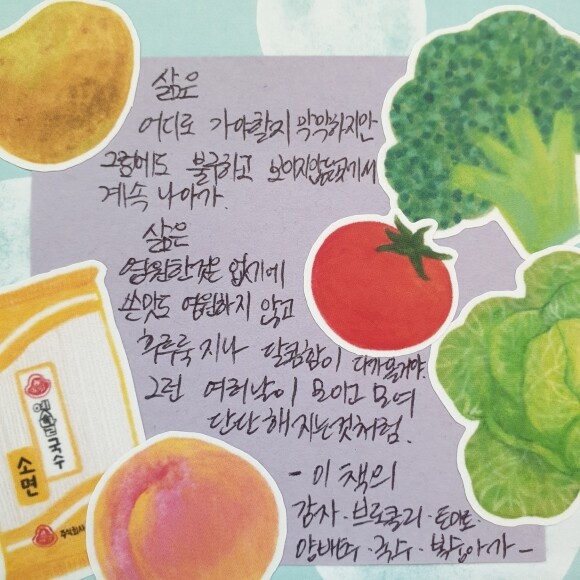 삶은
어디로 가야할지 막막하지만
그럼에도 불구하고 보이지않는곳에서
계속 나아가.
삶은
영원한것은 없기에
쓴맛도 영원하지 않고
후루룩 지나 달콤함이 다가올거야.
그런 여러날이 모이고 모여
단단해지는것처럼.
- 이 책의
감자·브로콜리·토마토·
양배추·국수·복숭아가 -
국수
소면
주식회사